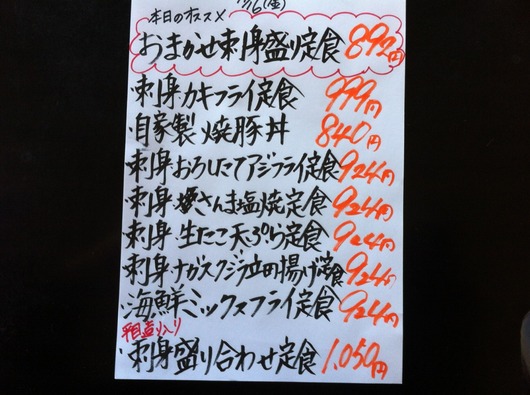 本日のオススメ
おまかせ刺身盛り定食 892円
・刺身カキフライ定食 979円
・自家製焼豚丼 840円
・刺身おろしたてアジフライ定食 924円
・刺身さんま塩焼定食 924円
・刺身生たこ天ぷら定食 924円
・刺身ナガスクジラ立田揚げ定食 924円
・海鮮ミックスフライ定食 924円
・刺身盛り合わせ定食 1,050円